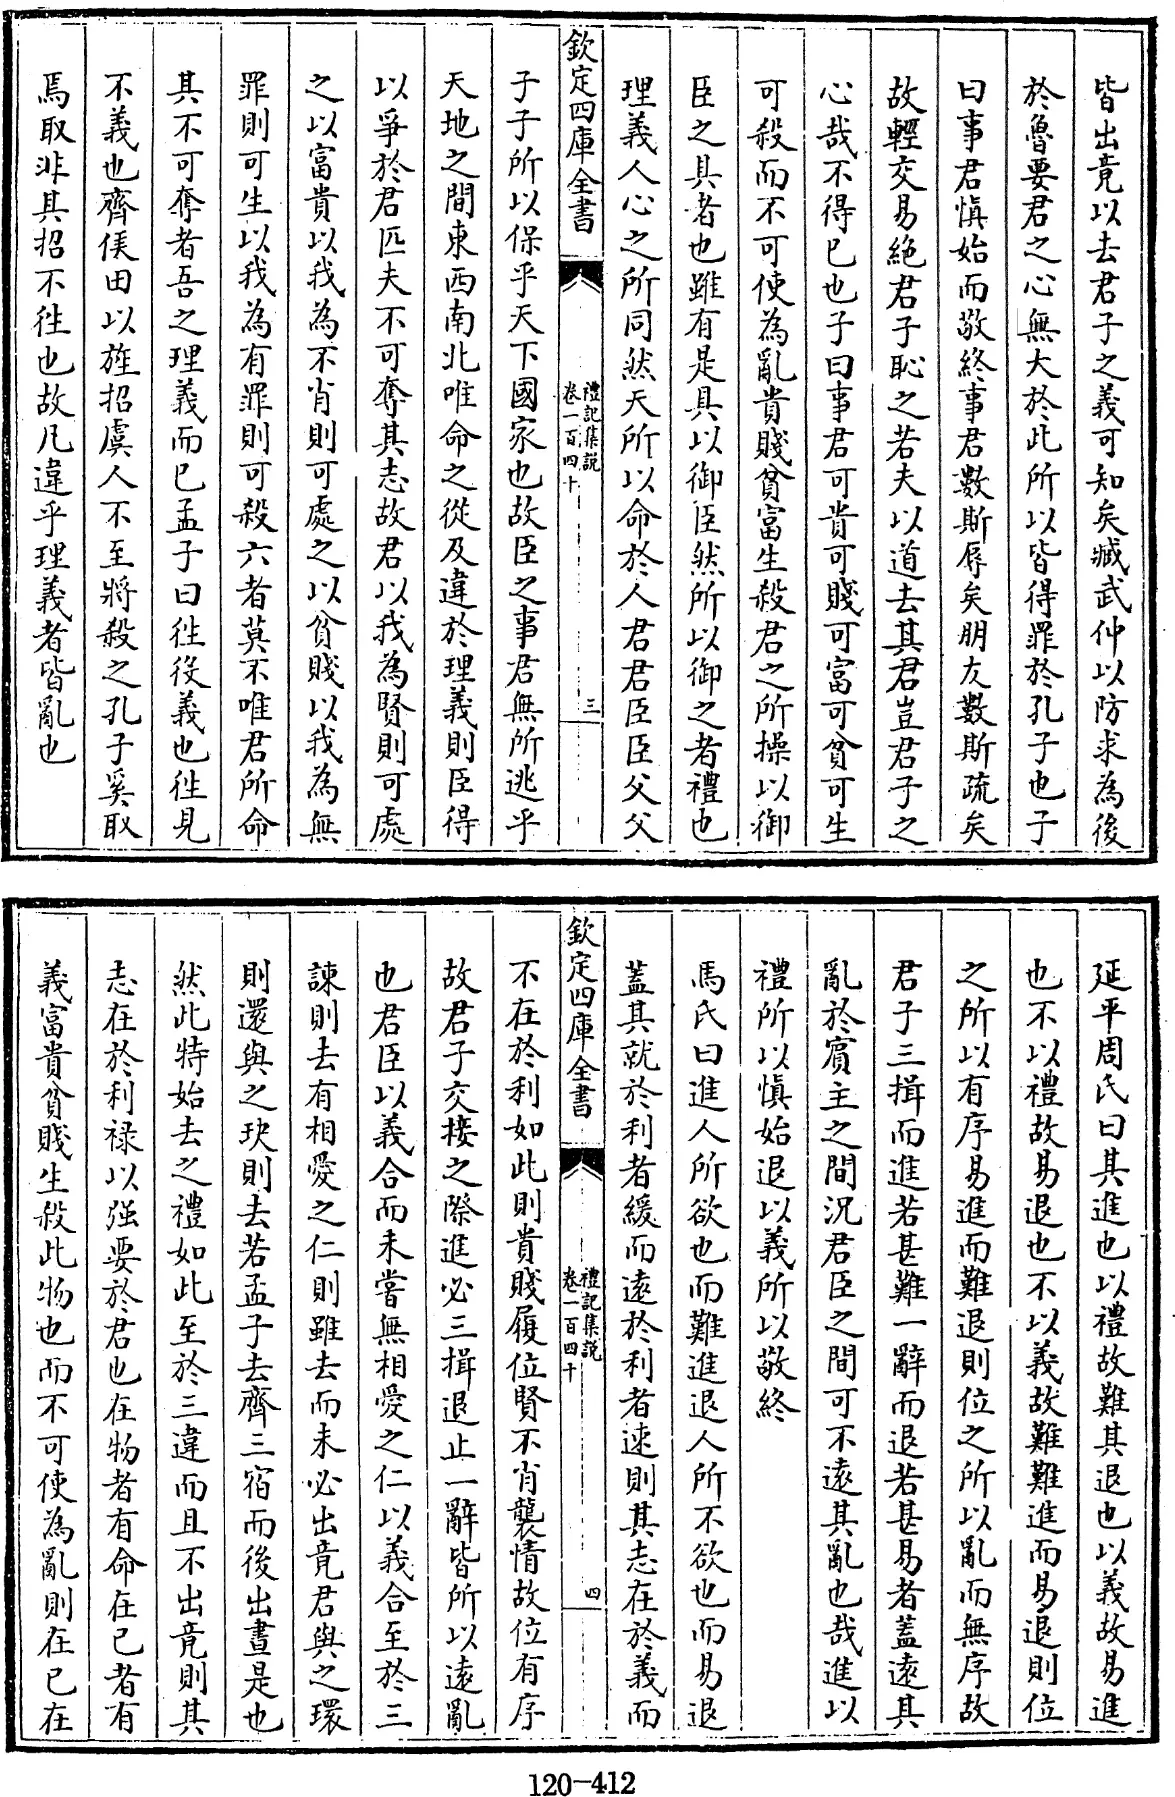 皆出竟以去君子之義可知矣臧武仲以防求為後
於魯要君之心無大於此所以皆得罪於孔子也子
曰事君慎始而敬終事君數斯辱矣朋友數斯疏矣
故輕交易絶君子恥之若夫以道去其君豈君子之
心哉不得已也子曰事君可貴可賤可富可貧可生
可殺而不可使為亂貴賤貧富生殺君之所操以御
臣之具者也雖有是具以御臣然所以御之者禮也
理義人心之所同然天所以命於人君君臣臣父父
欽定四庫全書
禮記集説
卷一百四十
三
子子所以保乎天下國家也故臣之事君無所逃乎
天地之間東西南北唯命之從及違於理義則臣得
以爭於君匹夫不可奪其志故君以我為賢則可處
之以富貴以我為不肖則可處之以貧賤以我為無
罪則可生以我為有罪則可殺六者莫不唯君所命
其不可奪者吾之理義而已孟子曰徃役義也徃見
不義也齊侯田以旌招虞人不至將殺之孔子奚取
焉取非其招不徃也故凡違乎理義者皆亂也
延平周氏曰其進也以禮故難其退也以義故易進
也不以禮故易退也不以義故難難進而易退則位
之所以有序易進而難退則位之所以亂而無序故
君子三揖而進若甚難一辭而退若甚易者蓋遠其
亂於賓主之間況君臣之間可不遠其亂也哉進以
禮所以慎始退以義所以敬終
馬氏曰進人所欲也而難進退人所不欲也而易退
蓋其就於利者緩而遠於利者速則其志在於義而
欽定四庫全書
禮記集説
卷一百四十
四
不在於利如此則貴賤履位賢不肖襲情故位有序
故君子交接之際進必三揖退止一辭皆所以遠亂
也君臣以義合而未嘗無相愛之仁以義合至於三
諫則去有相愛之仁則雖去而未必出竟君與之環
則還與之玦則去若孟子去齊三宿而後出晝是也
然此特始去之禮如此至於三違而且不出竟則其
志在於利禄以强要於君也在物者有命在已者有
義富貴貧賤生殺此物也而不可使為亂則在已在
120-412